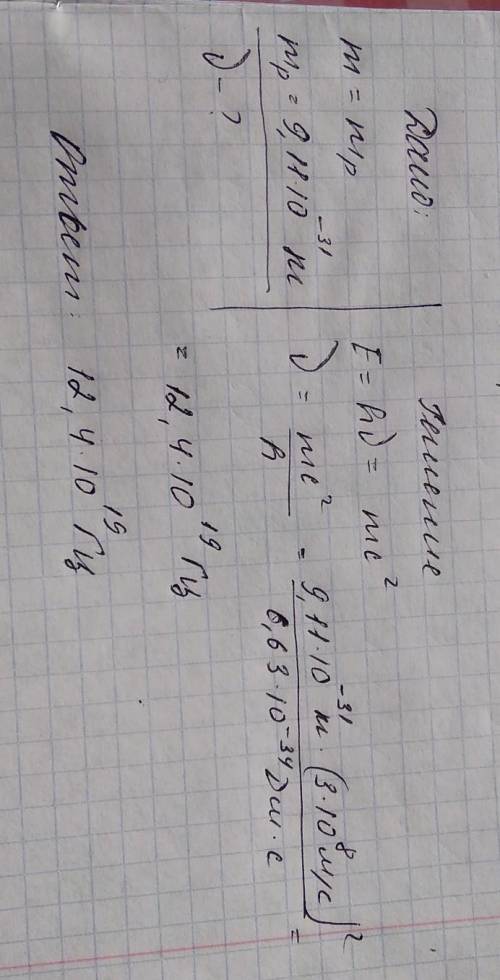 Дано:
m = mр
mр = 9,11·10⁻³¹ кг
ν - ?
Решение
E = hν = mc²
ν = mc²/h = 9,11·10⁻³¹ кг · (3·10⁸ м/с)² / 6,63·10⁻³⁴ Дж·с =
= 12,4·10¹⁹ Гц
Ответ: 12,4·10¹⁹ Гц